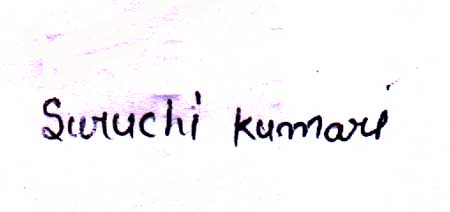 Suruchi kumari